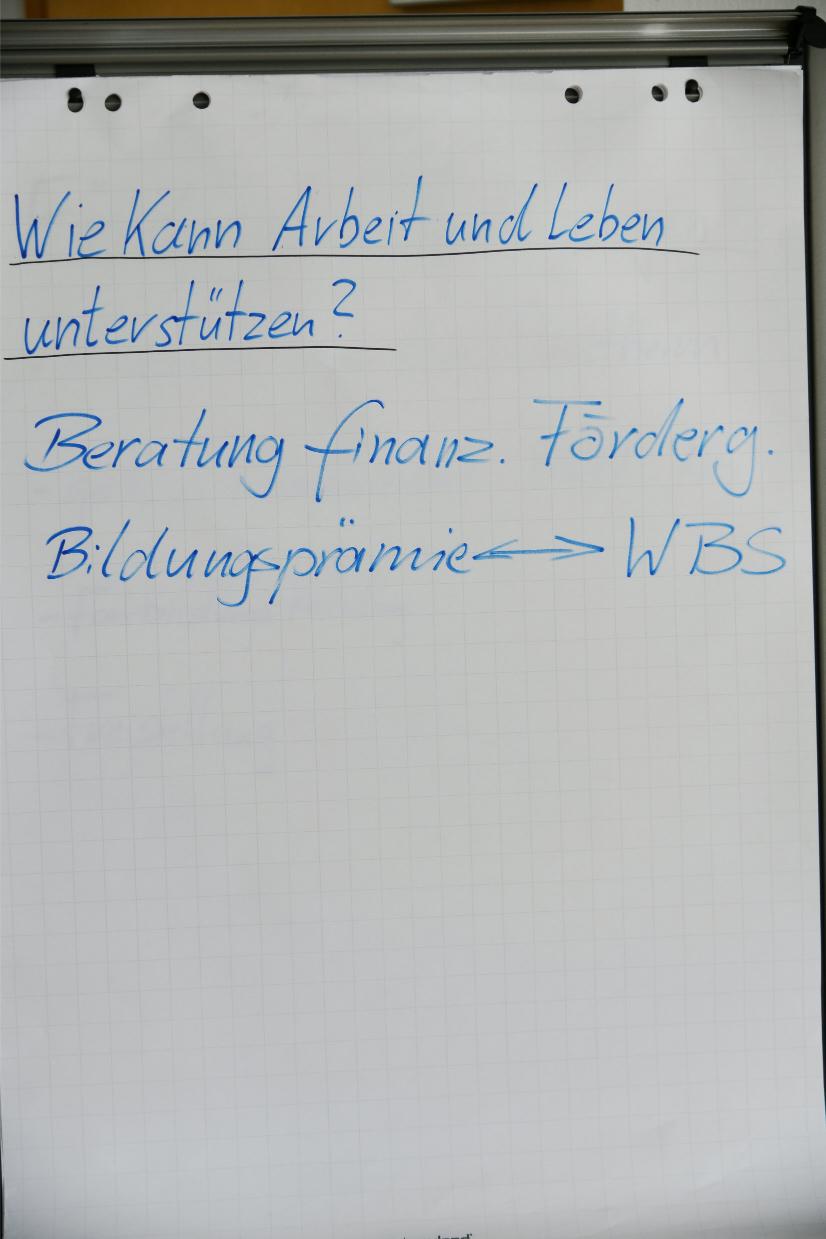 Wie Kann Arbeit und Leben
unterstützen?
Beratung finanz. Förderg.
Bildungsprämie <-> WBS